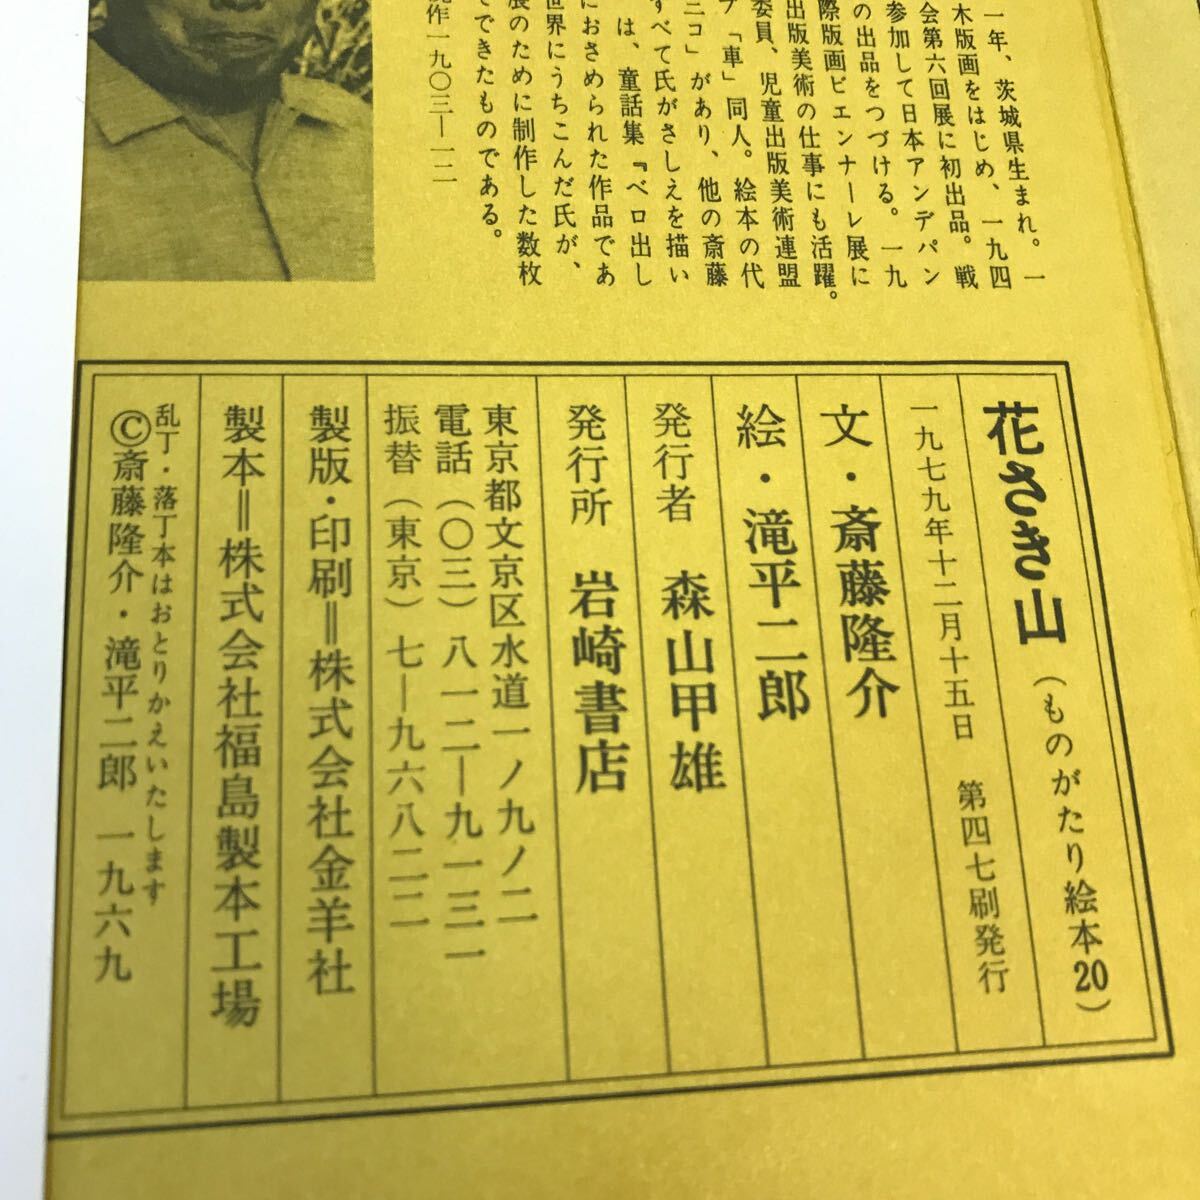 一年、茨城県生まれ。一
木版画をはじめ、一九四
会第六回展に初出品。戦
参加して日本アンデパン
の出品をつづける。一九
際版画ビエンナーレ展に
出版美術の仕事にも活躍。
委員、児童出版美術連盟
「車」同人。絵本の代
ニコ」があり、他の斎藤
すべて氏がさしえを描い
は、童話集『ベロ出し
におさめられた作品であ
世界にうちこんだ氏が、
展のために制作した数枚
でできたものである。
作一九〇三―一二
花さき山（ものがたり絵本20）
一九七九年十二月十五日　第四七刷発行
文・斎藤隆介
絵・滝平二郎
発行者　森山甲雄
発行所　岩崎書店
東京都文京区水道一ノ九ノ二
電話（〇三）八一二―九一三一
振替（東京）七―九六八二二
製版・印刷＝株式会社金羊社
製本＝株式会社福島製本工場
乱丁・落丁本はおとりかえいたします
©斎藤隆介・滝平二郎 一九六九